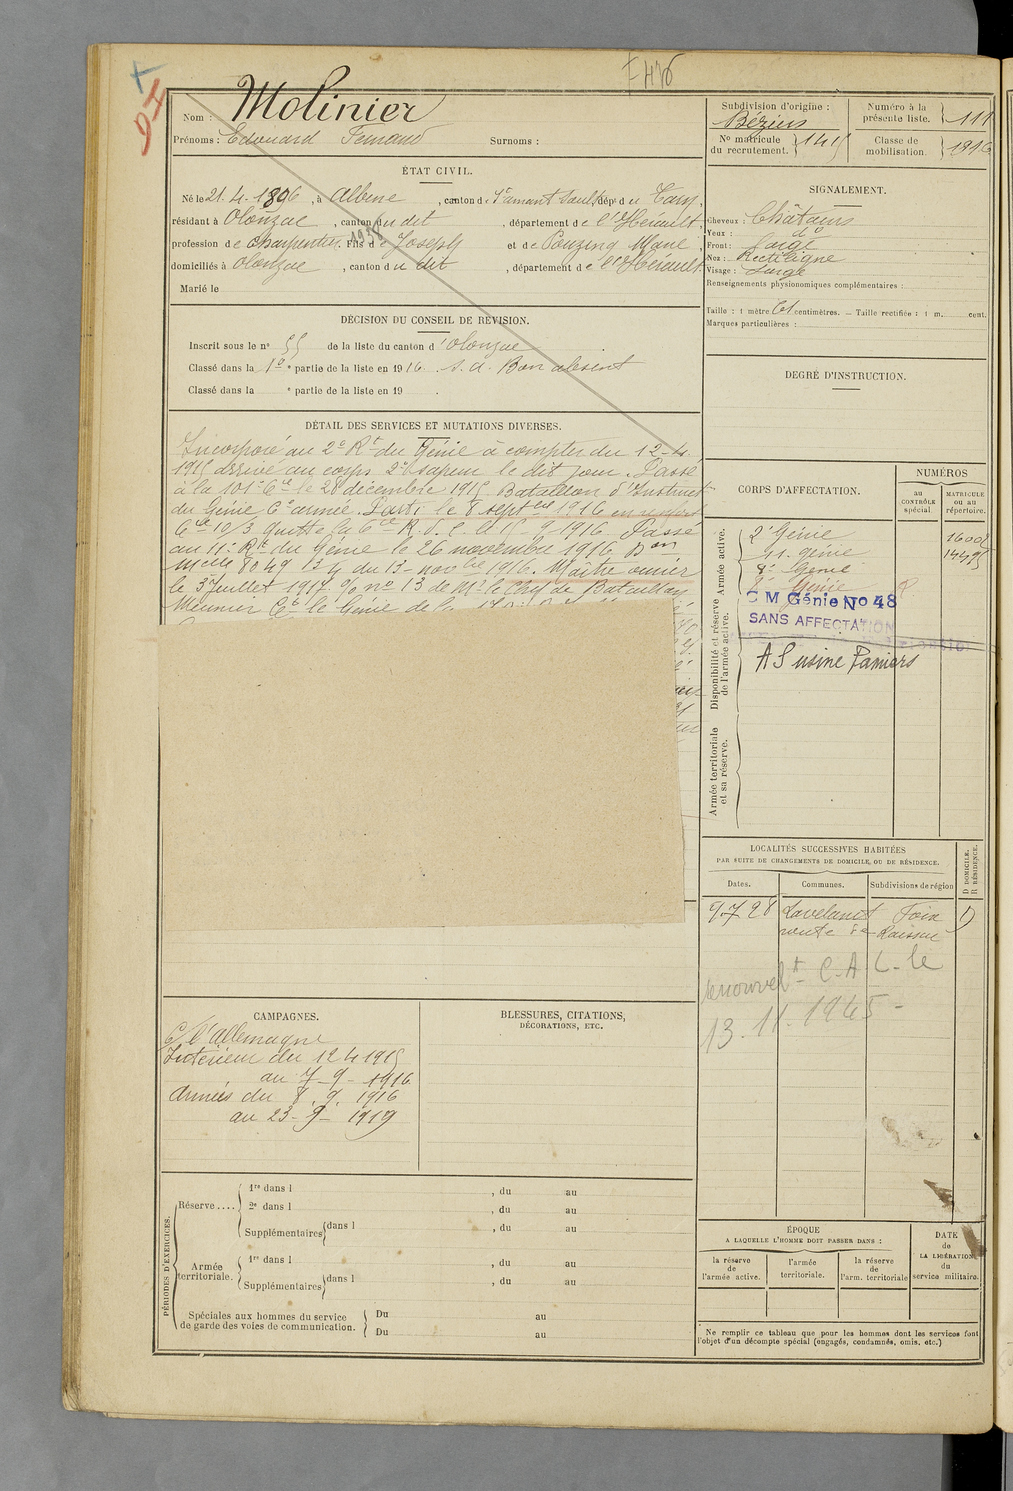 Nom : Molinier
Prénoms : Edouard Fernand Surnoms :
ÉTAT CIVIL.
Né le 21.4.1896, à Albine, canton de St amant Soult, dépt du Tarn,
résidant à Olonzac, canton du dit, département de l'Hérault,
profession de Charpentier, fils de Joseph et de Pouzenq Marie,
domiciliés à Olonzac, canton du dit, département de l'Hérault
Marié le
DÉCISION DU CONSEIL DE RÉVISION.
Inscrit sous le n° 55 de la liste du canton d'Olonzac
Classé dans la 1e partie de la liste en 1916. s. a. Bon absent
Classé dans la e partie de la liste en 19 .
DÉTAIL DES SERVICES ET MUTATIONS DIVERSES.
Incorporé au 2e Rt du Génie à compter du 12-4-
1915 arrivé au corps 2e sapeur le dit jour. Passé
à la 101e Cie le 28 décembre 1915. Bataillon d'Instruct
du Génie 6e armée. Parti le 8 septbre 1916 en renfort
Cie 10/3 quitte la Cie R. S. C. le 15-9-1916. Passé
au 11e Rt du Génie le 26 novembre 1916. Bon
mlle 8049 13 4 du 13-novbre 1916. Maître ouvrier
le 3 juillet 1917 % no 13 de Mr le Chef de Bataillon
Meunier Ct le Génie de la
CAMPAGNES.
C. l'Allemagne
Intérieur du 12 4 1915
au 7-9-1916
Armées du 8.9.1916
au 23-9-1919
BLESSURES, CITATIONS,
DÉCORATIONS, ETC.
PÉRIODES D'EXERCICES.
Réserve....
1re dans l , du au
2e dans l , du au
Supplémentaires dans l , du au
Armée territoriale.
1re dans l , du au
Supplémentaires dans l , du au
Spéciales aux hommes du service
de garde des voies de communication.
Du au
Du au
Subdivision d'origine :
Béziers
No matricule du recrutement. 1415
Numéro à la présente liste. 111
Classe de mobilisation. 1916
SIGNALEMENT.
Cheveux : Châtains
Yeux : do
Front : Large
Nez : Rectiligne
Visage : Large
Renseignements physionomiques complémentaires :
Taille : 1 mètre 61 centimètres. — Taille rectifiée : 1 m. cent.
Marques particulières :
DEGRÉ D'INSTRUCTION.
CORPS D'AFFECTATION.
NUMÉROS
AU CONTRÔLE spécial.
MATRICULE OU AU répertoire.
Armée active.
2e Génie 16002
11e génie 14495
8e Génie
Disponibilité et réserve de l'armée active.
C M Génie No 48
SANS AFFECTATION
AS usine Pamiers
Armée territoriale et sa réserve.
LOCALITÉS SUCCESSIVES HABITÉES
PAR SUITE DE CHANGEMENTS DE DOMICILE, OU DE RÉSIDENCE.
D DOMICILE. R RÉSIDENCE.
Dates. Communes. Subdivisions de région
9.7 28 Lavelanet Foix D
route
renouvelt C.A.C. le
13.11.1945-
ÉPOQUE
A LAQUELLE L'HOMME DOIT PASSER DANS :
la réserve de l'armée active.
l'armée territoriale.
la réserve de l'arm. territoriale
DATE de LA LIBÉRATION du service militaire.
Ne remplir ce tableau que pour les hommes dont les services font
l'objet d'un décompte spécial (engagés, condamnés, omis, etc.)